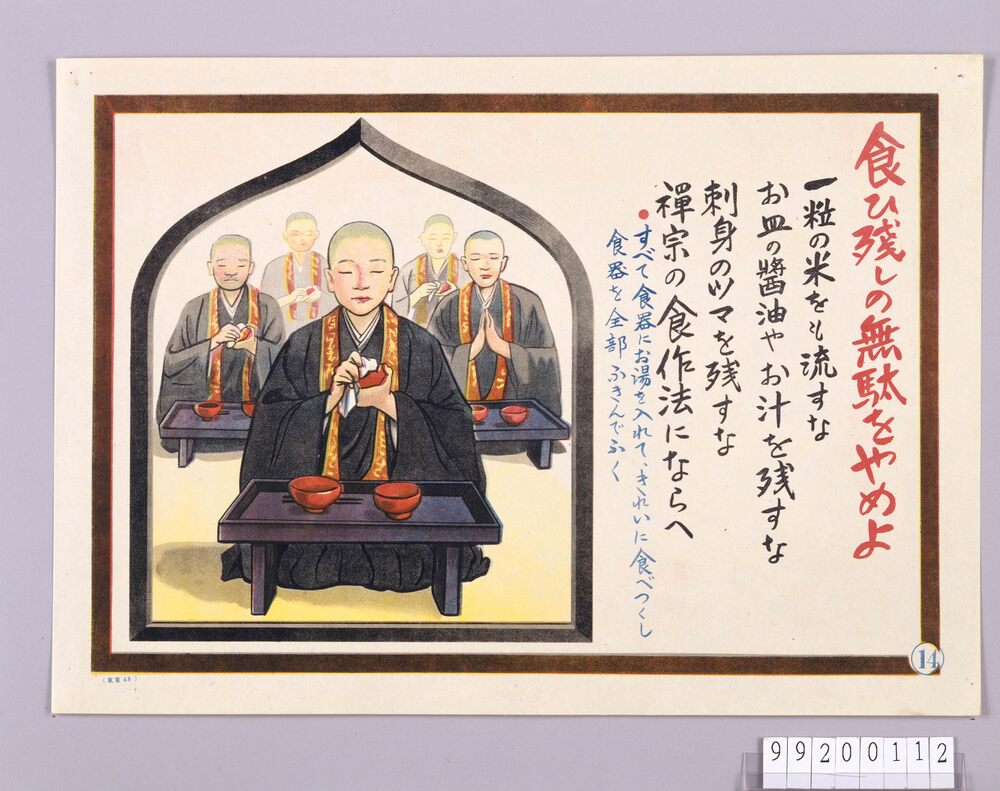 食ひ残しの無駄をやめよ
一粒の米をも流すな
お皿の醬油やお汁を残すな
刺身のツマを残すな
禪宗の食作法にならへ
●すべて食器にお湯を入れて、きれいに食べつくし
食器を全部ふきんでふく
14
99200112